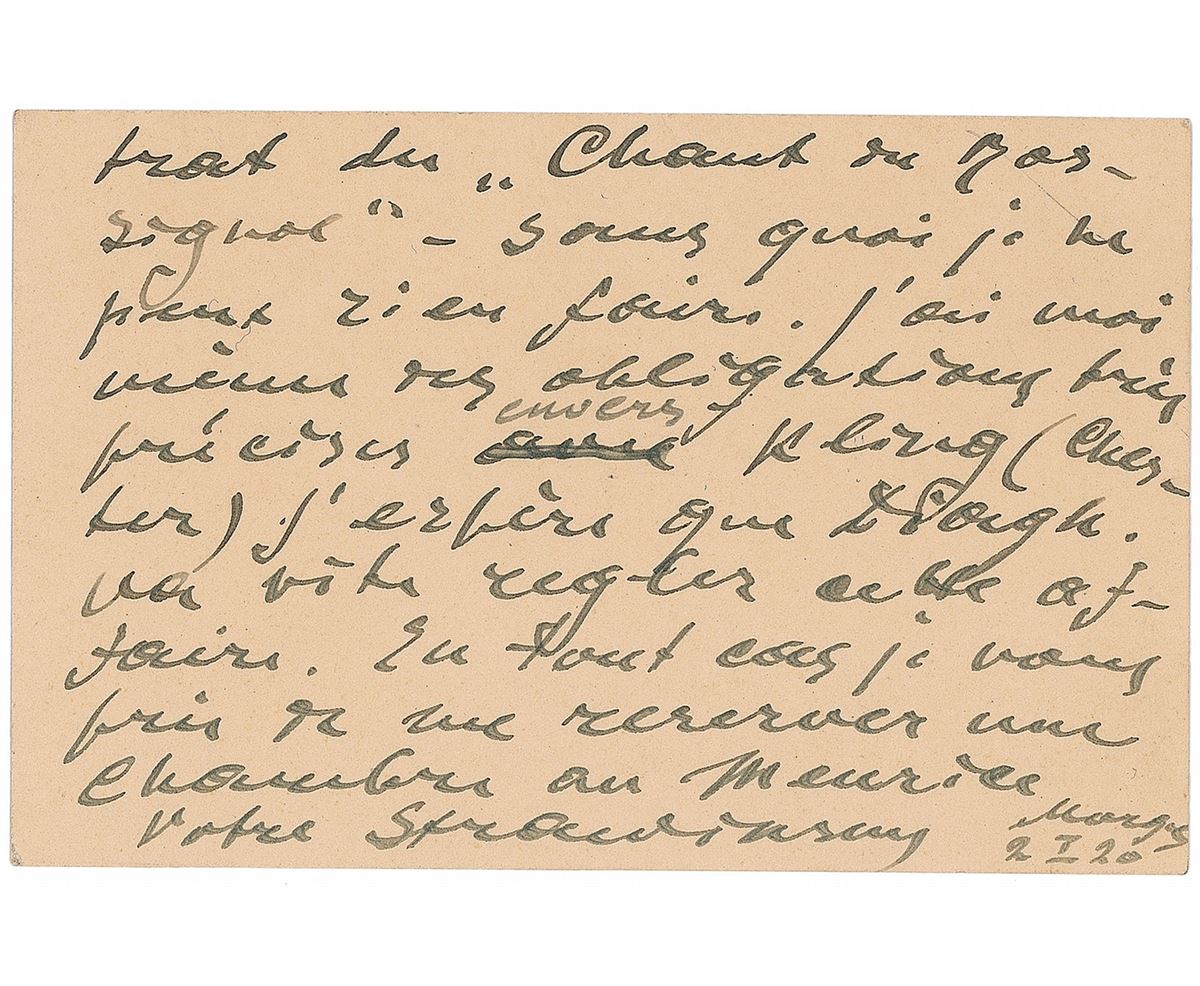 trat du „Chant du Ros-
signol" - sans quoi je ne
peux rien faire. J'ai moi
même des obligations très
précises avec envers Kling (Ches-
ter) J'espère que Diagh.
va vite regler cette af-
faire. En tout cas je vous
prie de me reserver une
chambre au Meurice
Votre Strawinsky
Morges
2 I 20